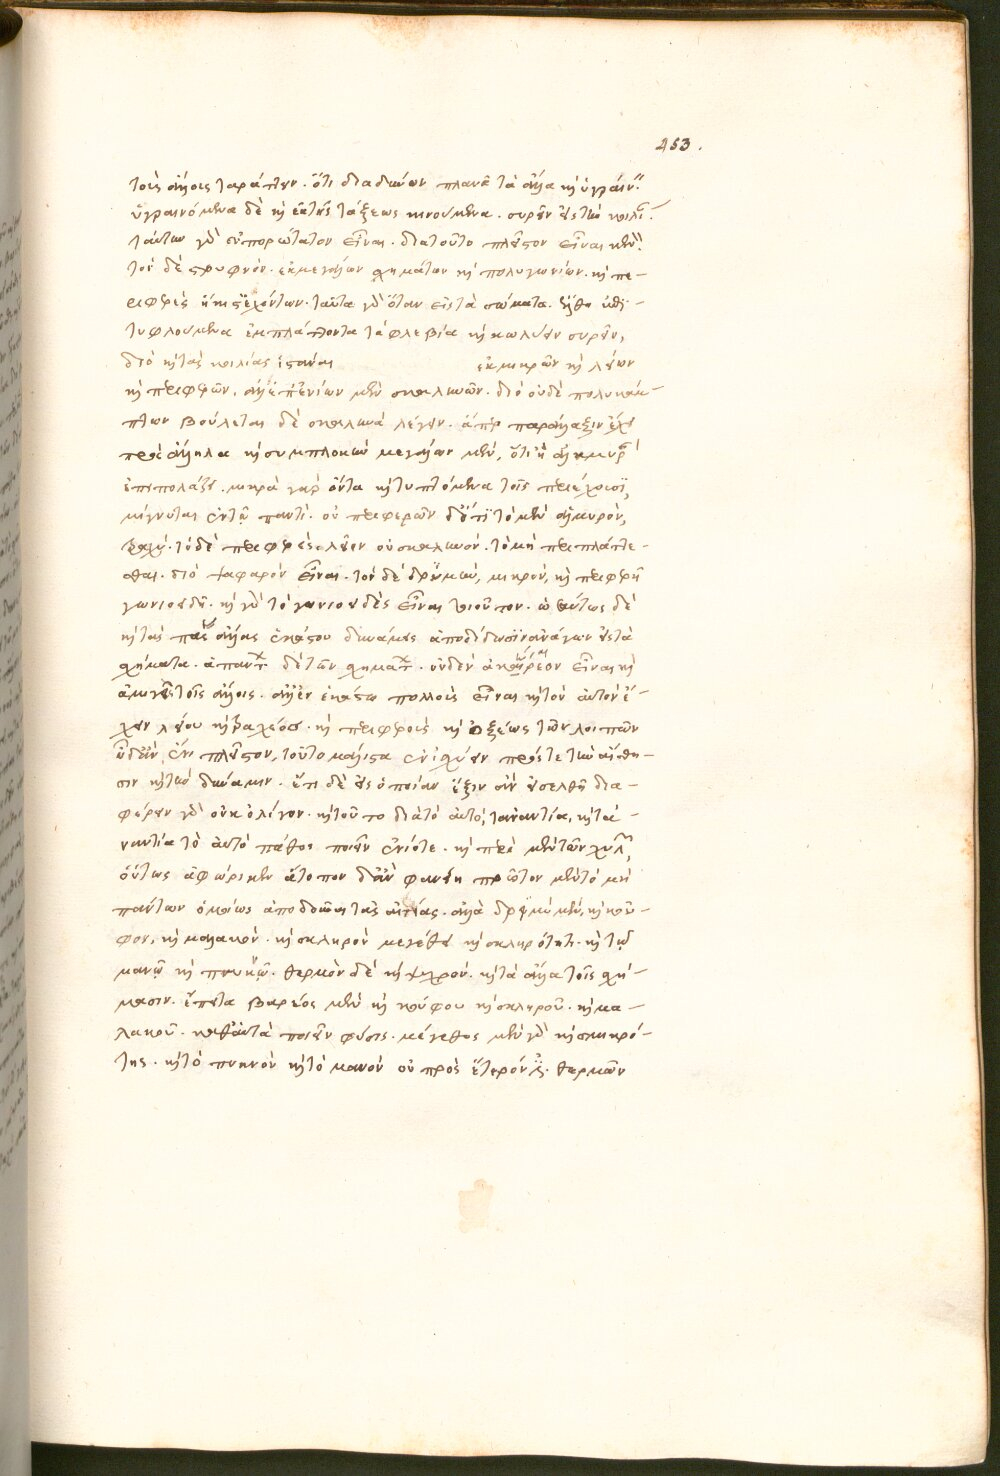 453.
τοῖς ἄλλοις ταράττειν. ὅτι διαδύνων πλανᾶ τὰ ἄλλα καὶ ὑγραίν
ὑγραινόμενα δὲ καὶ ἐκ τῆς τάξεως κινούμενα. συρεῖν εἰς τὴν κοιλί
ταύτην γὰρ εὐπορώτατον εἶναι. διὰ τοῦτο πλεῖστον εἶναι κενόν
τὸν δὲ στρυφνὸν. ἐκ μεγάλων σχημάτων καὶ πολυγωνίων. καὶ πε-
ριφερὲς ἥκιστ' ἐχόντων. ταῦτα γὰρ ὅταν εἰς τὰ σώματα. ἔλθη ἐπι-
τυφλούμενα ἐμπλάττοντα τὰ φλεβία καὶ κωλύειν συρεῖν,
διὸ καὶ τὰς κοιλίας ἱστάναι ἐκ μικρῶν καὶ λείων
καὶ περιφερῶν. ἀλλ' ἐπ' ἐνίων μὲν σκαληνῶν. διὸ οὐδὲ πολυκάμ-
πτων βούλεται δὲ σκαληνὰ λέγειν. ἅπερ παράλλαξιν ἔχει
πρὸς ἄλληλα καὶ συμπλοκὴν μεγάλων μὲν, ὅτι ἡ ἁλμυρ
ἐπιπολάζει. μικρὰ γὰρ ὄντα καὶ τυπτόμενα τοῖς περιέχουσι,
μίγνυται ἐν τῷ παντί. οὐ περιφερῶν δ' ὅτι τὸ μὲν ἁλμυρόν,
τὸ δὲ περιφερὲς λεῖον οὐ σκαληνόν. τὸ μὴ περιπλάττε-
σθαι. διὸ ψαφαρὸν εἶναι. τὸν δὲ δριμύν, μικρόν, καὶ περιφερῆ
γωνιοειδῆ. καὶ γὰρ τὸ γωνιοειδὲς εἶναι τοιοῦτον. ὡσαύτως δὲ
καὶ τὰς τὰς ἄλλας ἑκάστου δυνάμεις ἀποδίδωσιν ἀνάγων εἰς τὰ
σχήματα. ἁπάντ δὲ τῶν σχηματ. οὐδὲν ἀκέραιον εἶναι καὶ
ἀμιγὲς τοῖς ἄλλοις. ἀλλ' ἐν ἑκάστω πολλοὺς εἶναι καὶ τὸν αὐτὸν ἔ-
χειν λείου καὶ τραχέως. καὶ περιφεροῦς καὶ ὀξέως τῶν λοιπῶν
οὗ δ' ἂν ἐνῆ πλεῖστον, τοῦτο μάλιστα ἐνισχύειν πρός τε τὴν αἴσθη-
σιν καὶ τὴν δύναμιν. ἔτι δὲ εἰς ὁποίαν ἕξιν ἂν εἰσέλθη δια-
φέρειν γὰρ οὐκ ὀλίγον. καὶ τοῦτο διὰ τὸ αὐτό, τἀναντία, καὶ τἀ-
ναντία τὸ αὐτὸ πάθος ποιεῖν ἐνίοτε. καὶ περὶ μὲν τῶν χυλ
οὕτως ἀφώρικεν ἄτοπον δ' ἂν φανείη πρῶτον μὲν τὸ μὴ
πάντων ὁμοίως ἀποδοῦναι τὰς αἰτίας. ἀλλὰ δριμὺ μὲν, καὶ κοῦ-
φον, καὶ μαλακὸν. καὶ σκληρὸν μεγέθει καὶ σκληρότητι. καὶ τῷ
μανῷ καὶ πυκνῷ. θερμὸν δὲ καὶ ψυχρὸν. καὶ τὰ ἄλλα τοῖς σχή-
μασιν. ἔπειτα βαρέος μὲν καὶ κούφου καὶ σκληροῦ. καὶ μα-
λακοῦ. καθ' αὑτὰ ποιεῖν φύσις. μέγεθος μὲν γὰρ καὶ σμικρό-
της. καὶ τὸ πυκνὸν καὶ τὸ μανὸν οὐ πρὸς ἕτερόν ἐστ. θερμὸν